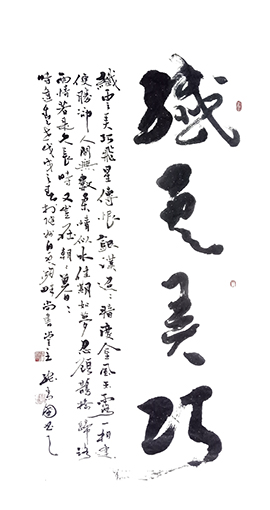 纖云弄巧
纖雲弄巧飛星傳恨銀漢迢〻暗渡金風玉露一相逢
便勝卻人間無數柔情似水佳期如夢忍顧鵲橋歸路
兩情若是久長時又豈在朝〻暮〻
戊戌之春 尚書堂主